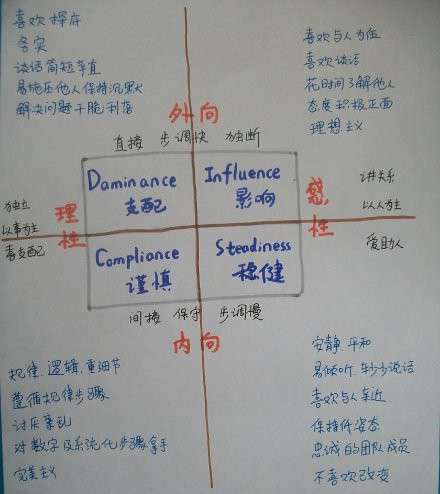 喜欢掌府
务实
谈话简短率直
易施压他人保持沉默
解决问题干脆利落
喜欢与人为伍
喜欢谈话
花时间了解他人
态度积极正面
理想主义
外向
直接 步调快 独断
Daminance
支配
Influence
影响
理性
感性
独立
以事为主
喜支配
讲关系
以人为主
爱助人
Compliance
谨慎
Steadiness
稳健
间接 保守 步调慢
内向
规律 逻辑 重细节
遵循规律步骤
讨厌紊乱
对数字及系统化步骤拿手
完美主义
安静 平和
易倾听 少说话
喜欢与人亲近
保持低姿态
忠诚的团队成员
不喜欢改变